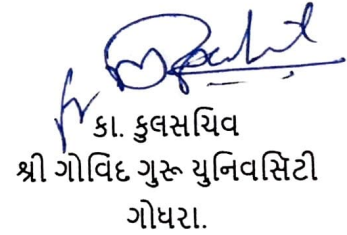 કા. કુલસચિવ
શ્રી ગોવિંદ ગુરૂ યુનિવર્સિટી
ગોધરા.